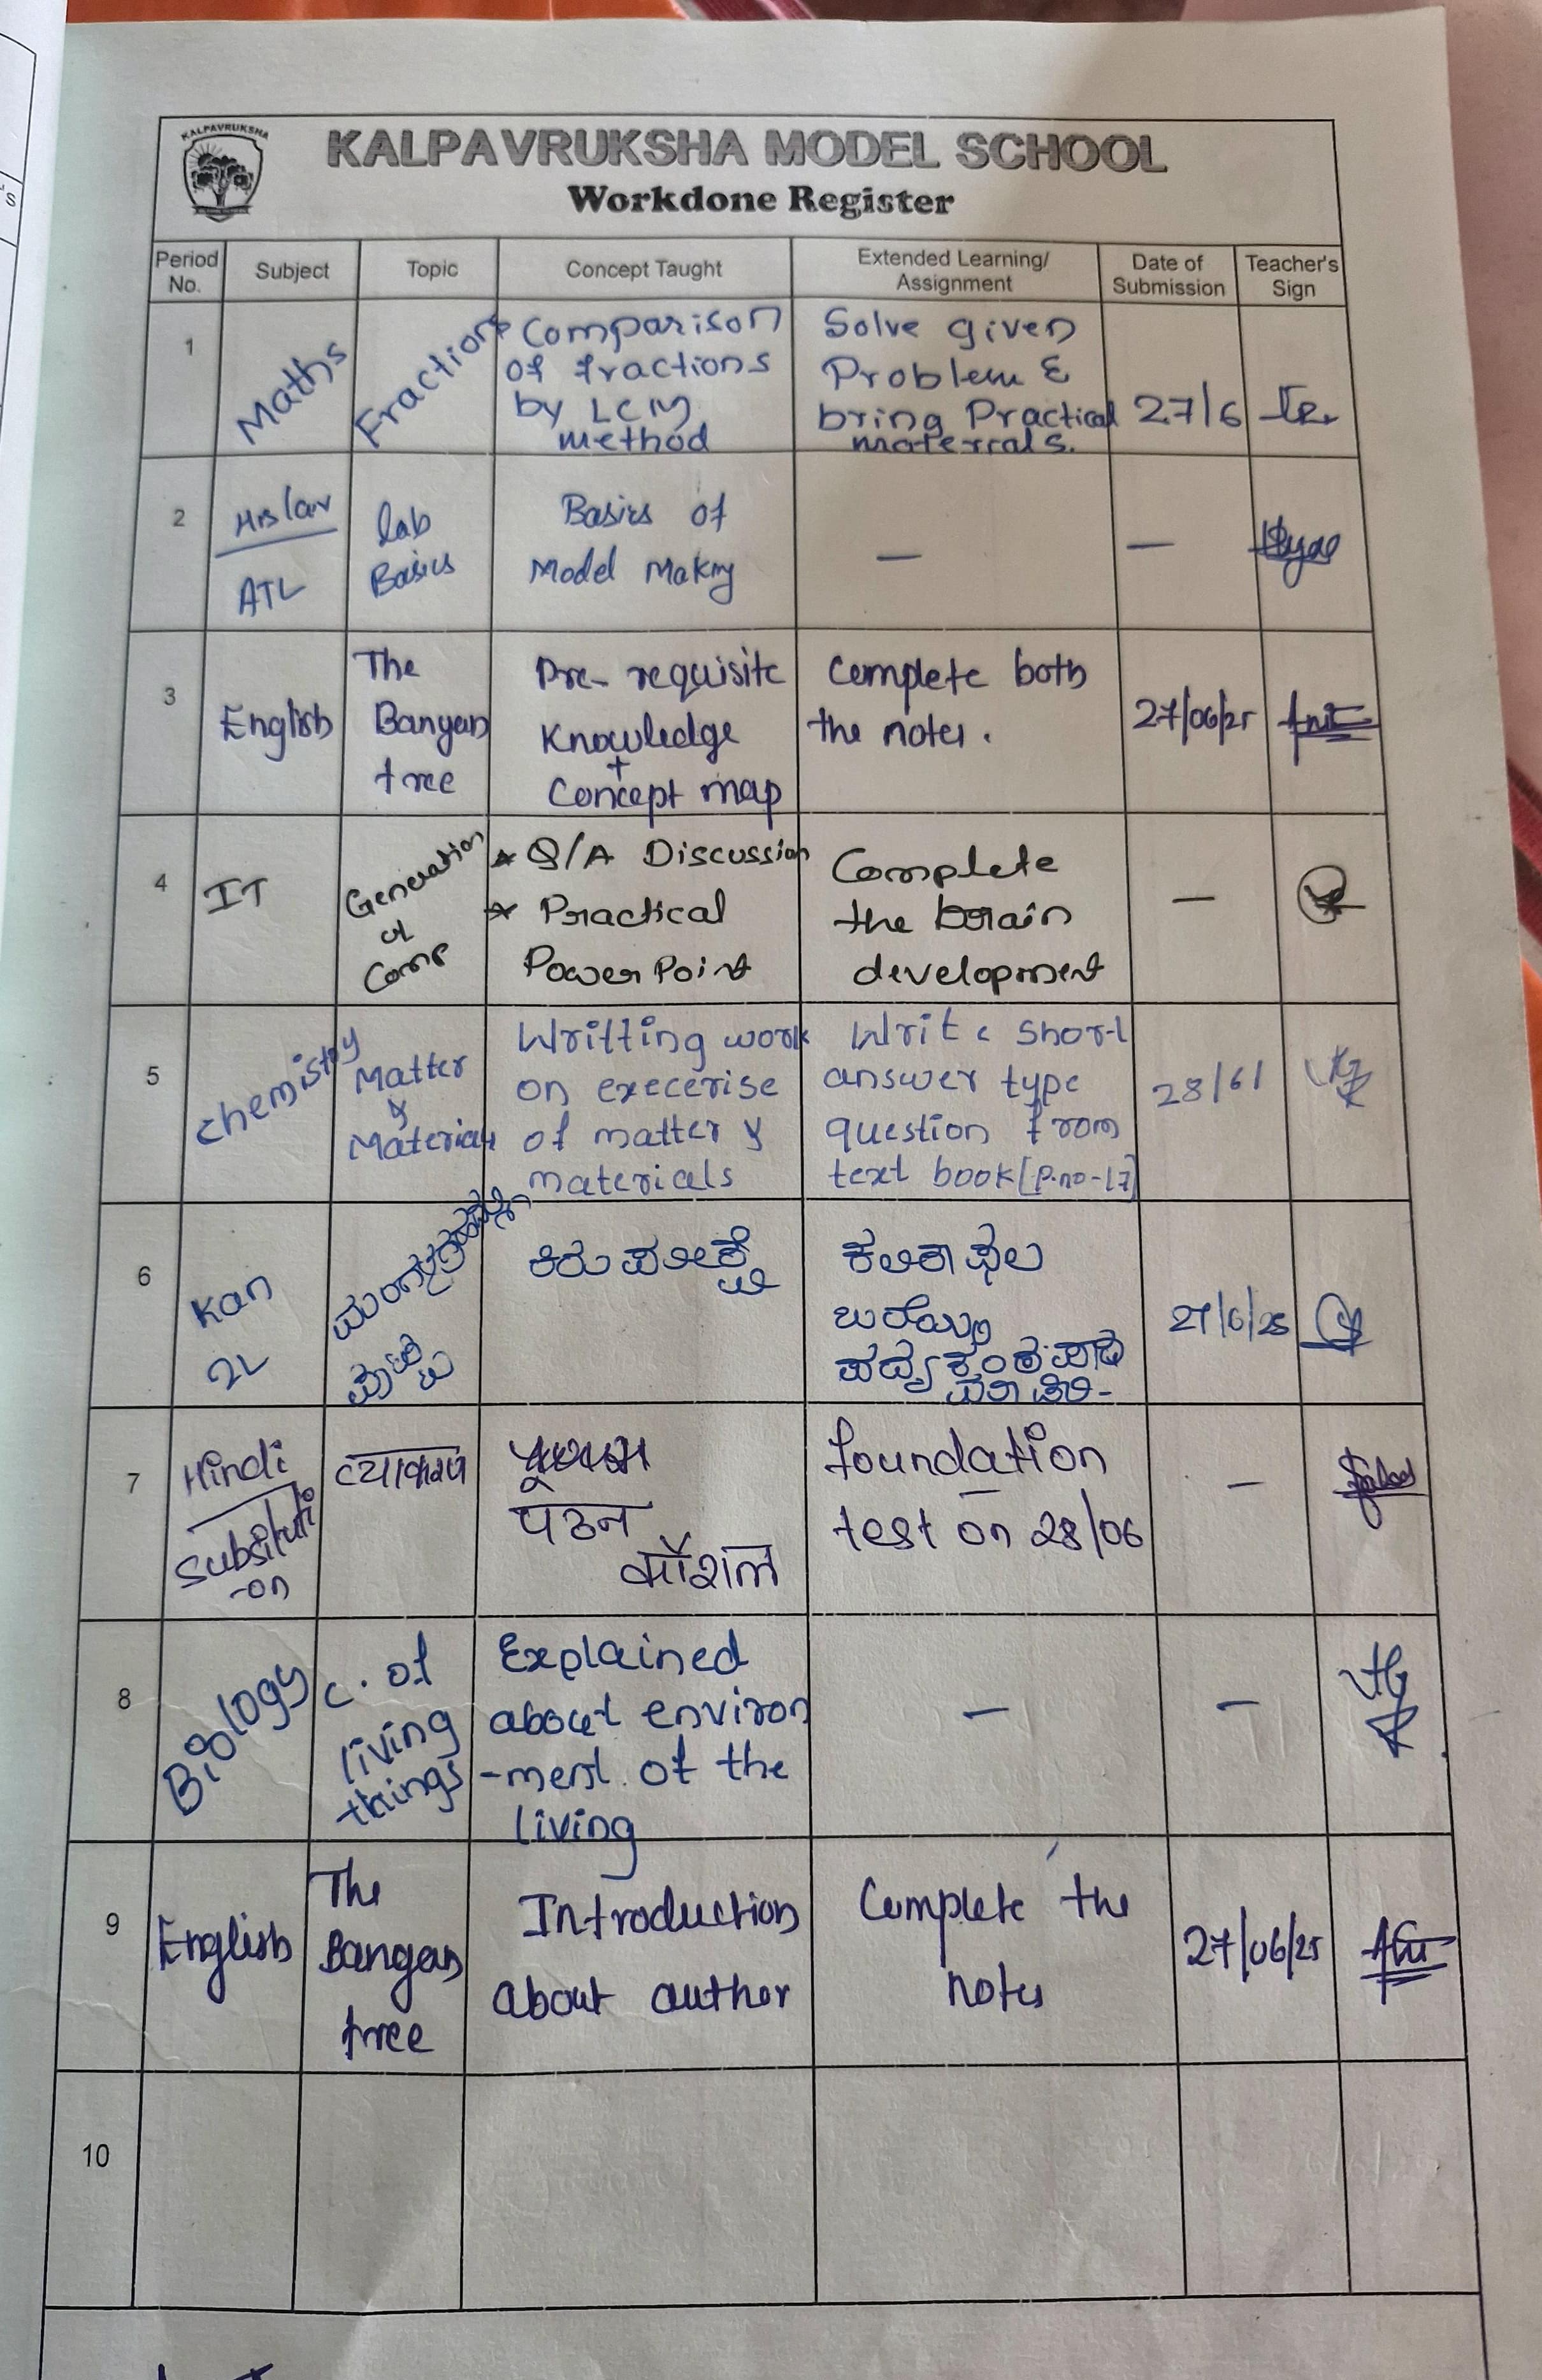 KALPAVRUKSHA
KALPAVRUKSHA MODEL SCHOOL
Workdone Register
Period No.
Subject
Topic
Concept Taught
Extended Learning/
Assignment
Date of
Submission
Teacher's
Sign
1
Maths
Fractions
Comparison
of fractions
by LCM
method
Solve given
Problem &
bring Practical
materials.
27/6
2
ATL
lab
Basics
Basics of
Model Making
—
—
3
English
The
Banyan
tree
Pre-requisite
Knowledge
+
Concept map
Complete both
the notes.
27/06/25
4
IT
Generation
of
Comp
* Q/A Discussion
* Practical
PowerPoint
Complete
the brain
development
—
5
Chemistry
Matter
&
Materials
Writting work
on execerise
of matter &
materials
Write short
answer type
question from
text book [P.no-17]
28/6/
6
Kan
2L
ಕಿರು ಪರೀಕ್ಷೆ
ಕಲಿಕಾ ಫಲ
ಬರೆಯಿರಿ
ಪದ್ಯ ಕಂಠಪಾಠ
27/6/25
7
Hindi
Substituti
-on
व्याकरण
पठन
कौशल
foundation
test on 28/06
-
8
Biology
C. of
living
things
Explained
about environ
-ment of the
living
—
—
9
English
The
Banyan
tree
Introduction
about author
Complete the
notes
27/06/25
10